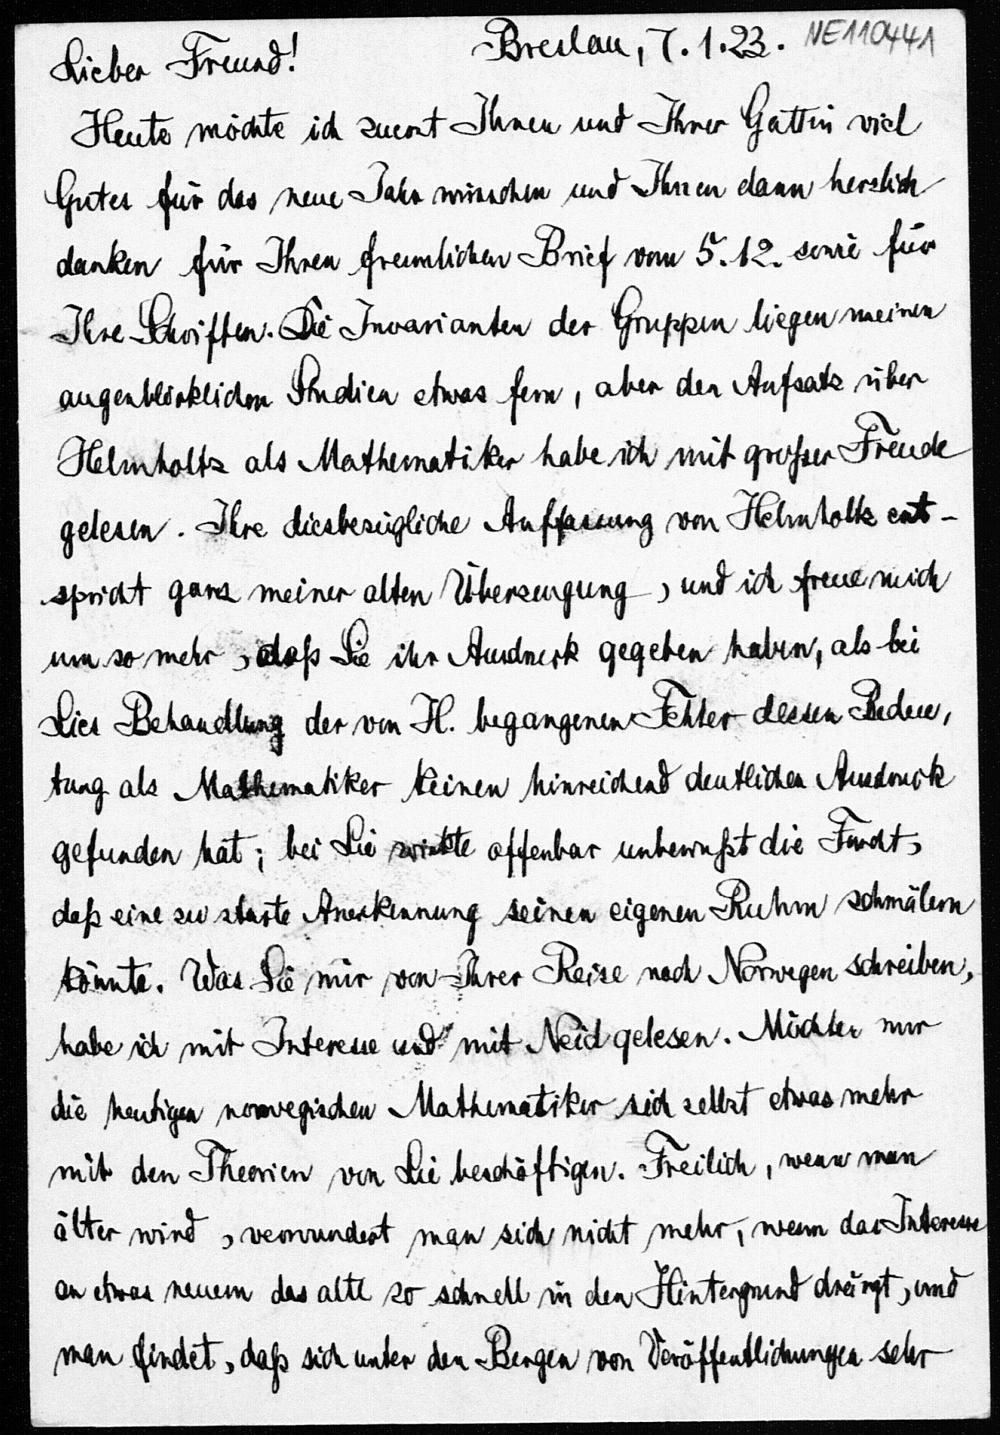 Breslau, 7.1.23. NE110441
Lieber Freund!
Heute möchte ich zuerst Ihnen und Ihrer Gattin viel
Gutes für das neue Jahr wünschen und Ihnen dann herzlich
danken für Ihren freundlichen Brief vom 5.12. sowie für
Ihre Schriften. Die Invarianten der Gruppen liegen meinen
augenblicklichen Studien etwas fern, aber den Aufsatz über
Helmholtz als Mathematiker habe ich mit großer Freude
gelesen. Ihre diesbezügliche Auffassung von Helmholtz ent-
spricht ganz meiner alten Überzeugung, und ich freue mich
um so mehr, daß Sie ihr Ausdruck gegeben haben, als bei
Lies Behandlung der von H. begangenen Fehler dessen Bedeu,
tung als Mathematiker keinen hinreichend deutlichen Ausdruck
gefunden hat; bei Lie wirkte offenbar unbewußt die Furcht,
daß eine zu starke Anerkennung seinen eigenen Ruhm schmälern
könnte. Was Sie mir von Ihrer Reise nach Norwegen schreiben,
habe ich mit Interesse und mit Neid gelesen. Möchten nur
die heutigen norwegischen Mathematiker sich selbst etwas mehr
mit den Theorien von Lie beschäftigen. Freilich, wenn man
älter wird, verwundert man sich nicht mehr, wenn das Interesse
an etwas neuem das alte so schnell in den Hintergrund drängt, und
man findet, daß sich unter den Bergen von Veröffentlichungen sehr